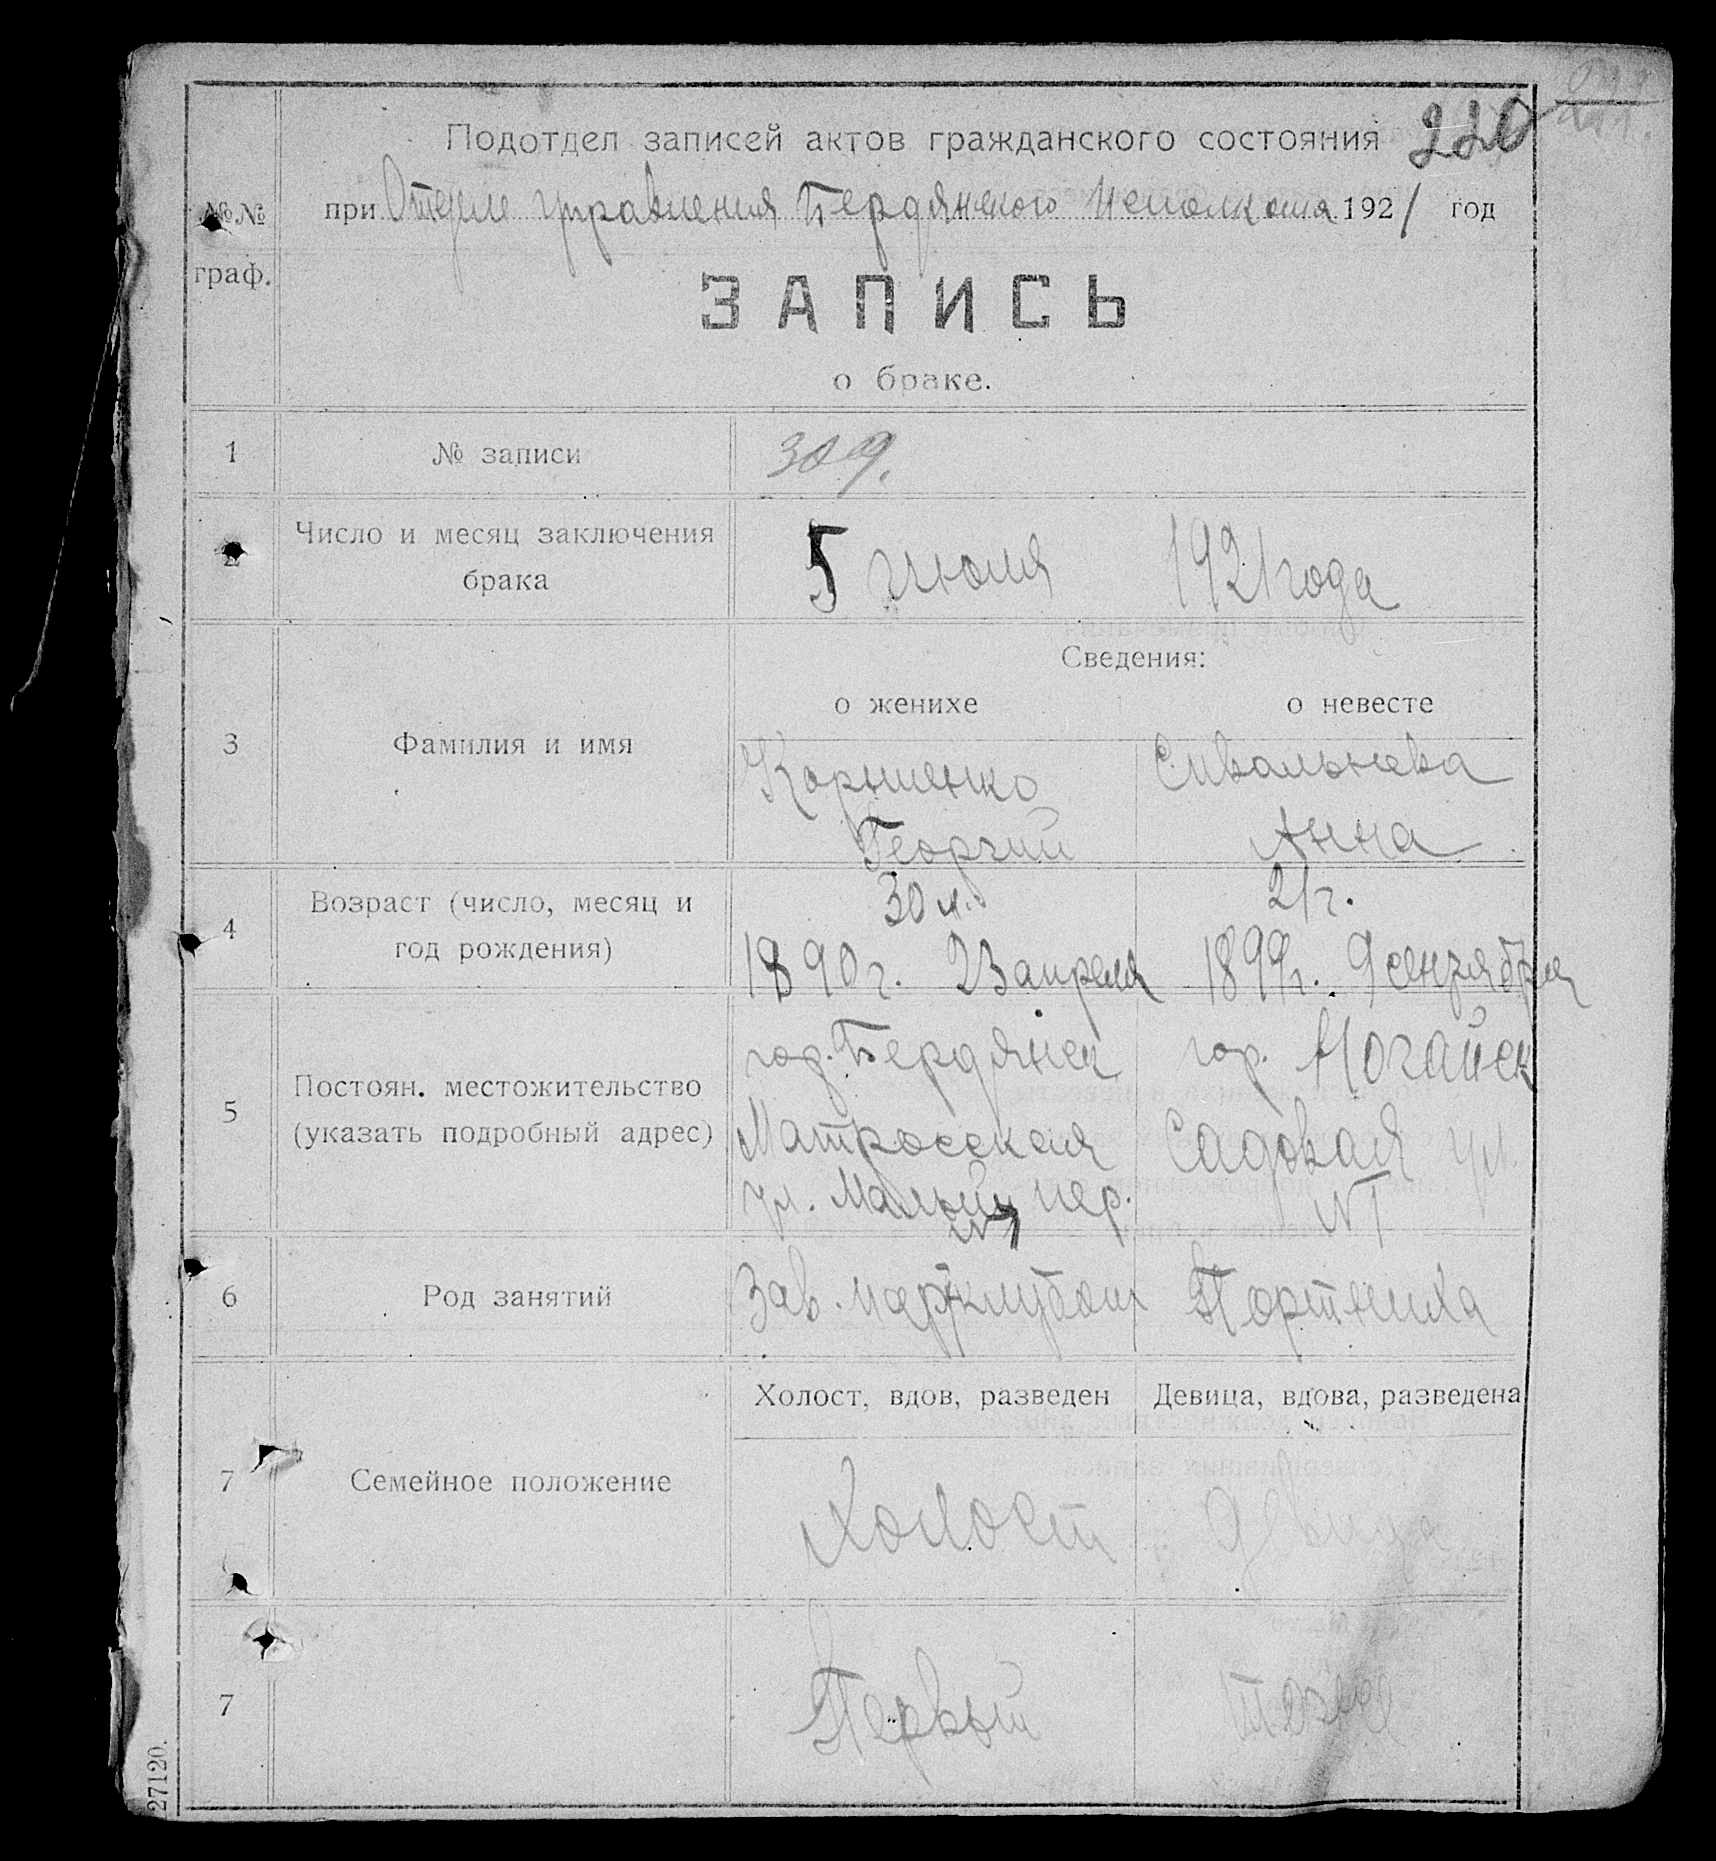 220
Подотдел записей актов гражданского состояния
при Отделе управления Бердянского Исполкома 1921 год
№№
граф.
ЗАПИСЬ
о браке.
1 № записи 309.
2 Число и месяц заключения
брака
5 июля 1921 года
Сведения:
о женихе о невесте
3 Фамилия и имя
Георгий Анна
4 Возраст (число, месяц и
год рождения)
30 л. 21 г.
1890 г. 23 апреля 1899 г. 9 сентября
5 Постоян. местожительство
(указать подробный адрес)
гор. Бердянск гор. Ногайск
Матросская Садовая ул.
ул. Малый пер. №1
6 Род занятий
Зав. партклубом Портниха
Холост, вдов, разведен Девица, вдова, разведена
7 Семейное положение
Холост девица
7
Первый тоже
27120.